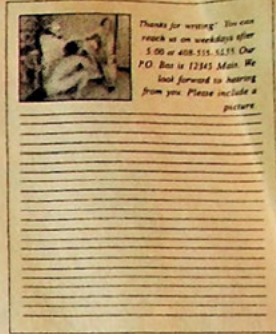 Thanks for writing! You can
reach us on weekdays after
5:00 at 408-555-5555 Our
P.O. Box is 12345 Main. We
look forward to hearing
from you. Please include a
picture